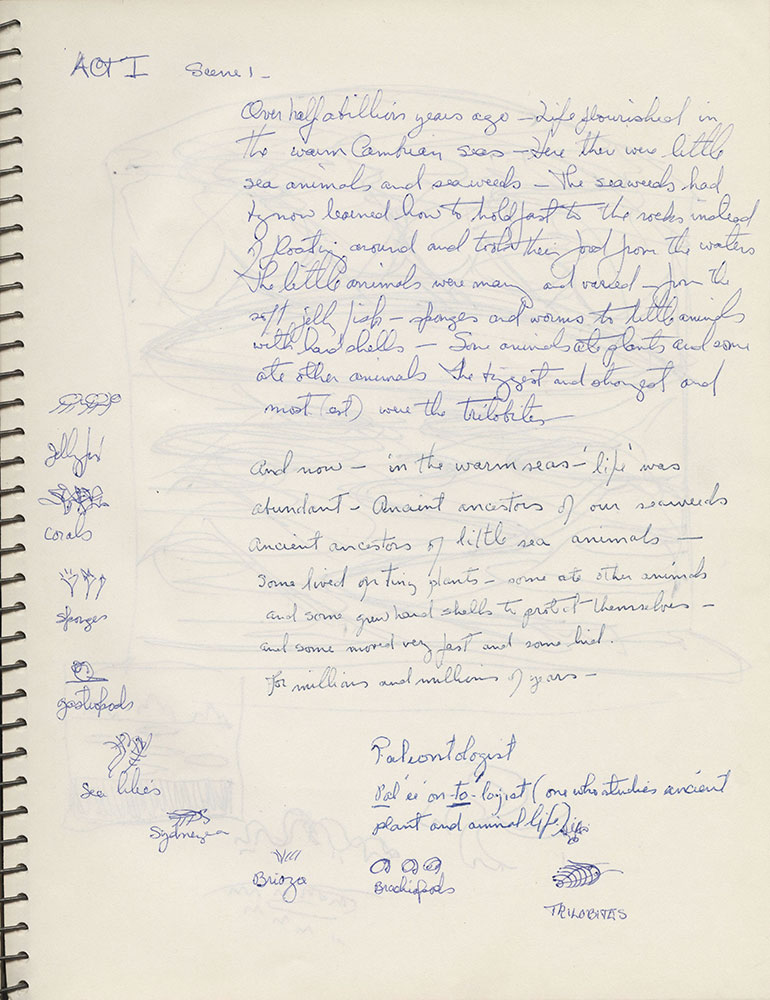 ACT I Scene 1 -
Over half a billion years ago - Life flourished in
the warm Cambrian seas - Here there were little
sea animals and seaweeds - The seaweeds had
by now learned how to hold fast to the rocks instead
of floating around and took their food from the waters
The little animals were many and varied - from the
soft jelly fish - sponges and worms to little animals
with hard shells - Some animals ate plants and some
ate other animals The biggest and strongest and
most (est) were the trilobites
and now - in the warm seas - 'life' was
abundant - Ancient ancestors of our seaweeds
Ancient ancestors of little sea animals -
Some lived on tiny plants - some ate other animals
and some grew hard shells to protect themselves -
and some moved very fast and some hid.
For millions and millions of years -
Jellyfish
Corals
Sponges
gastropods
Sea lilies
Sydneyea
Brioza
Paleontologist
Pal'ee on-to'-logist (one who studies ancient
plant and animal life)
Brachiopods
TRILOBITES